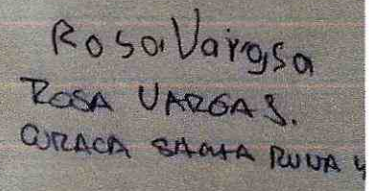 Rosa Vargas
ROSA VARGAS.
CURACA SANTA RUNA